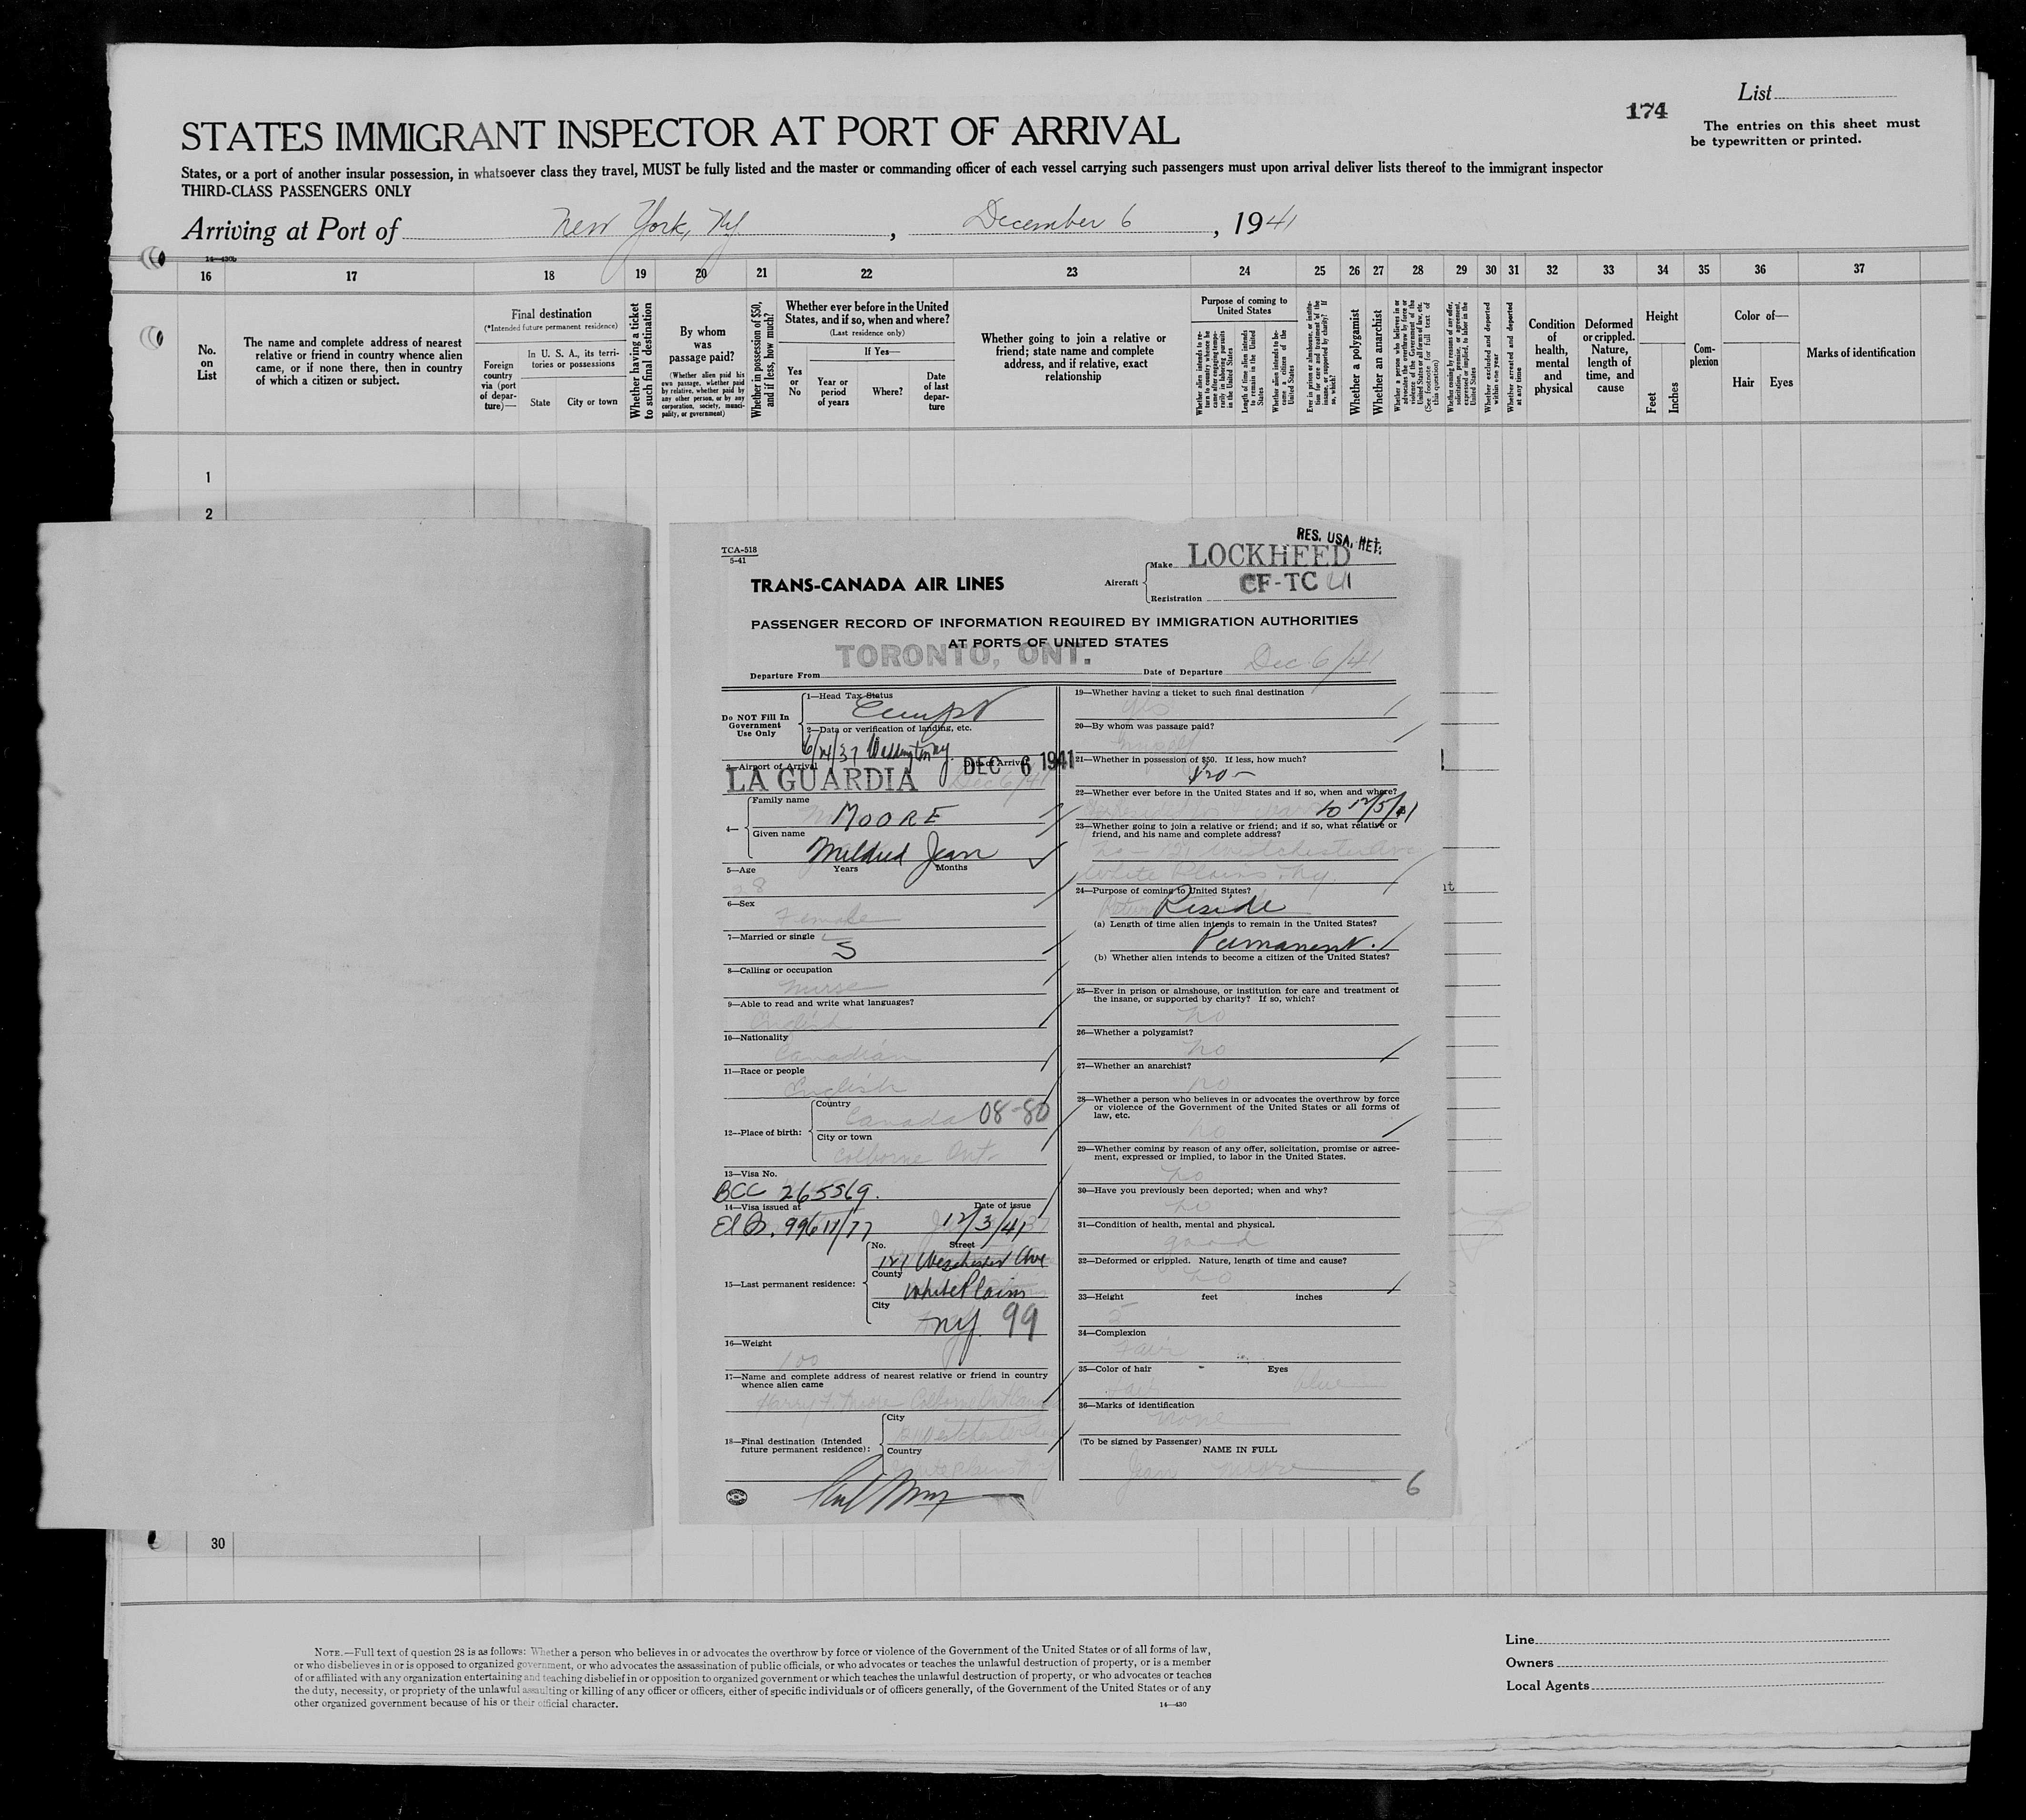 List
174
The entries on this sheet must
be typewritten or printed.
STATES IMMIGRANT INSPECTOR AT PORT OF ARRIVAL
States, or a port of another insular possession, in whatsoever class they travel, MUST be fully listed and the master or commanding officer of each vessel carrying such passengers must upon arrival deliver lists thereof to the immigrant inspector
THIRD-CLASS PASSENGERS ONLY
Arriving at Port of New York, NY, December 6, 1941
14—430b
16 17 18 19 20 21 22 23 24 25 26 27 28 29 30 31 32 33 34 35 36 37
No. on List
The name and complete address of nearest relative or friend in country whence alien came, or if none there, then in country of which a citizen or subject.
Final destination
(*Intended future permanent residence)
Foreign country via (port of departure)—
In U. S. A., its territories or possessions
State
City or town
Whether having a ticket to such final destination
By whom was passage paid?
(Whether alien paid his own passage, whether paid by relative, whether paid by any other person, or by any corporation, society, municipality, or government)
Whether in possession of $50, and if less, how much?
Whether ever before in the United States, and if so, when and where?
(Last residence only)
Yes or No
If Yes—
Year or period of years
Where?
Date of last departure
Whether going to join a relative or friend; state name and complete address, and if relative, exact relationship
Purpose of coming to United States
Length of time alien intends to remain in the United States
Whether alien intends to become a citizen of the United States
Whether a polygamist
Whether an anarchist
Whether excluded and deported within one year
Whether arrested and deported at any time
Condition of health, mental and physical
Deformed or crippled. Nature, length of time, and cause
Height
Feet
Inches
Complexion
Color of—
Hair
Eyes
Marks of identification
1
2
TCA-518
5-41
RES. USA, RET.
TRANS-CANADA AIR LINES
Aircraft
Make LOCKHEED
Registration CF-TC
PASSENGER RECORD OF INFORMATION REQUIRED BY IMMIGRATION AUTHORITIES
AT PORTS OF UNITED STATES
Departure From TORONTO, ONT.
Date of Departure Dec 6/41
Do NOT Fill In Government Use Only
1—Head Tax Status
Exempt
2—Data or verification of landing, etc.
3—Airport of Arrival LA GUARDIA
Date of Arrival DEC 6 1941
Dec 6/41
4— Family name MOORE
Given name Mildred Jean
5—Age Years Months
28
6—Sex
Female
7—Married or single
S
8—Calling or occupation
nurse
9—Able to read and write what languages?
English
10—Nationality
Canadian
11—Race or people
English
12—Place of birth: Country
Canada 08-80
City or town
Colborne Ont.
13—Visa No.
BCC 265569.
14—Visa issued at
Date of issue
12/3/41
15—Last permanent residence: No. Street
121 Westchester Ave
County
White Plains
City
NY. 99
16—Weight
100
17—Name and complete address of nearest relative or friend in country whence alien came
18—Final destination (Intended future permanent residence): City
Country
19—Whether having a ticket to such final destination
yes
20—By whom was passage paid?
myself
21—Whether in possession of $50. If less, how much?
$20-
22—Whether ever before in the United States and if so, when and where?
to 12/5/41
23—Whether going to join a relative or friend; and if so, what relative or friend, and his name and complete address?
no - 121 Westchester Ave
White Plains, N.y.
24—Purpose of coming to United States?
Reside
(a) Length of time alien intends to remain in the United States?
Permanent.
(b) Whether alien intends to become a citizen of the United States?
25—Ever in prison or almshouse, or institution for care and treatment of the insane, or supported by charity? If so, which?
no
26—Whether a polygamist?
no
27—Whether an anarchist?
no
28—Whether a person who believes in or advocates the overthrow by force or violence of the Government of the United States or all forms of law, etc.
no
29—Whether coming by reason of any offer, solicitation, promise or agreement, expressed or implied, to labor in the United States.
no
30—Have you previously been deported; when and why?
no
31—Condition of health, mental and physical.
good
32—Deformed or crippled. Nature, length of time and cause?
no
33—Height feet inches
5
34—Complexion
Fair
35—Color of hair Eyes
fair blue
36—Marks of identification
none
(To be signed by Passenger)
NAME IN FULL
Jean Moore
6
30
NOTE.—Full text of question 28 is as follows: Whether a person who believes in or advocates the overthrow by force or violence of the Government of the United States or of all forms of law,
or who disbelieves in or is opposed to organized government, or who advocates the assassination of public officials, or who advocates or teaches the unlawful destruction of property, or is a member
of or affiliated with any organization entertaining and teaching disbelief in or opposition to organized government or which teaches the unlawful destruction of property, or who advocates or teaches
the duty, necessity, or propriety of the unlawful assaulting or killing of any officer or officers, either of specific individuals or of officers generally, of the Government of the United States or of any
other organized government because of his or their official character.
14—430
Line
Owners
Local Agents